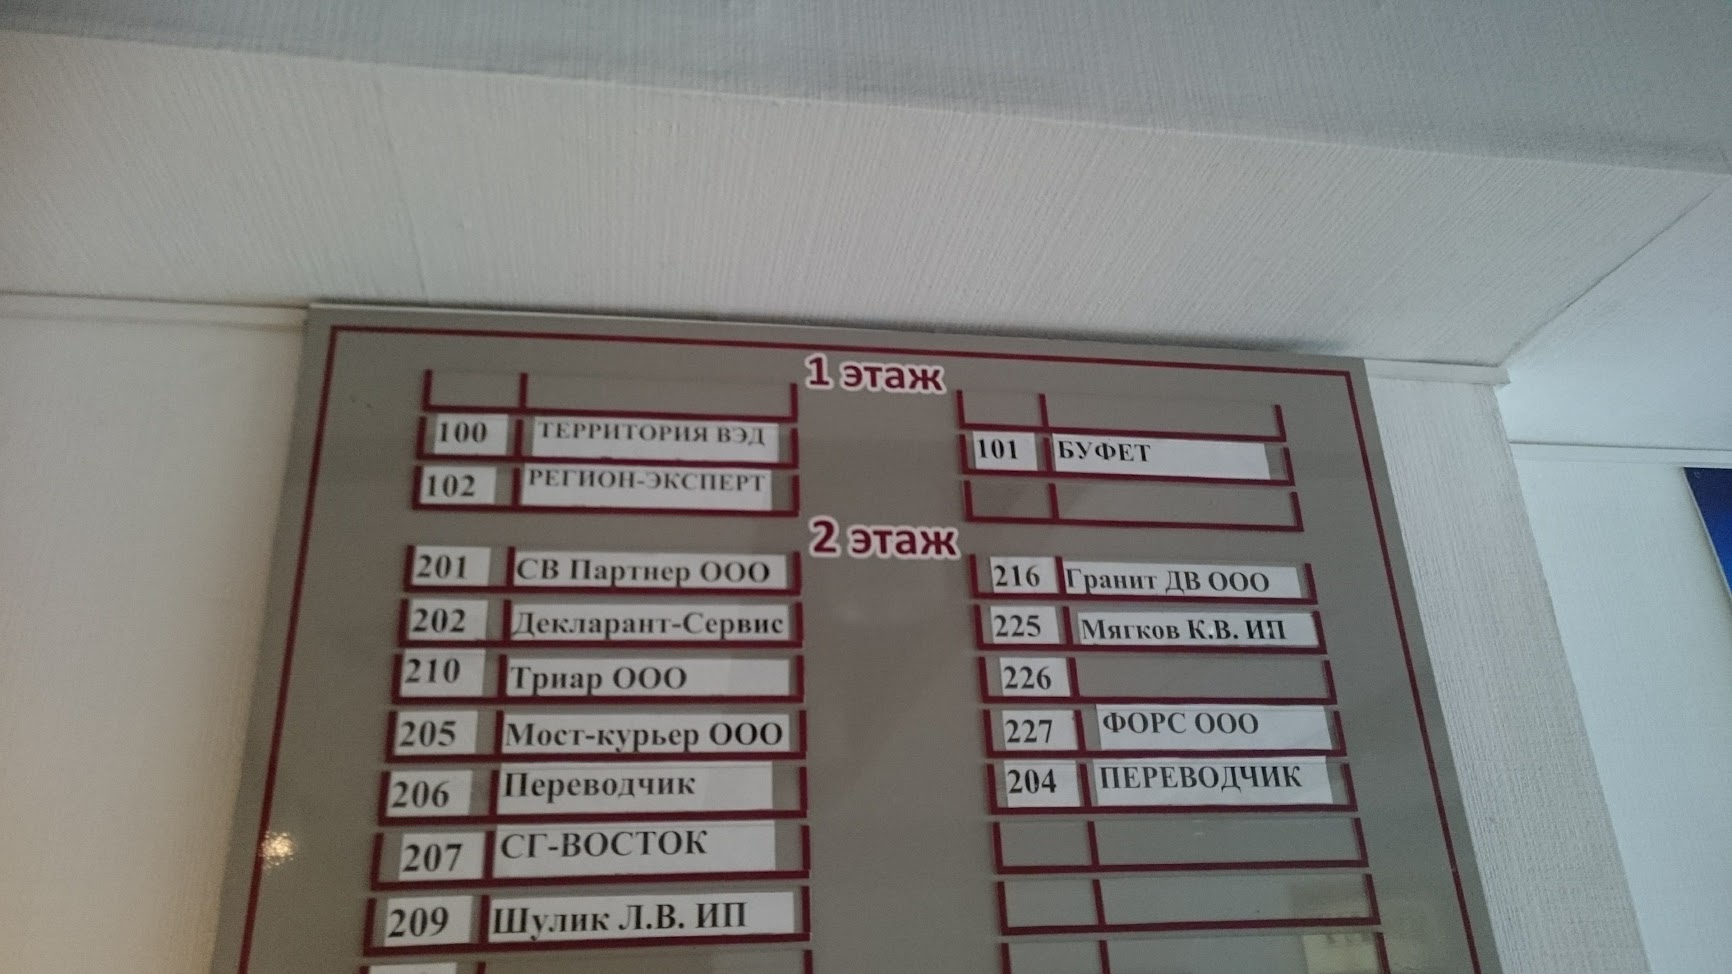 1 этаж
100 ТЕРРИТОРИЯ ВЭД
102 РЕГИОН-ЭКСПЕРТ
101 БУФЕТ
2 этаж
201 СВ Партнер ООО
202 Декларант-Сервис
210 Триар ООО
205 Мост-курьер ООО
206 Переводчик
207 СГ-ВОСТОК
209 Шулик Л.В. ИП
216 Гранит ДВ ООО
225 Мягков К.В. ИП
226
227 ФОРС ООО
204 ПЕРЕВОДЧИК